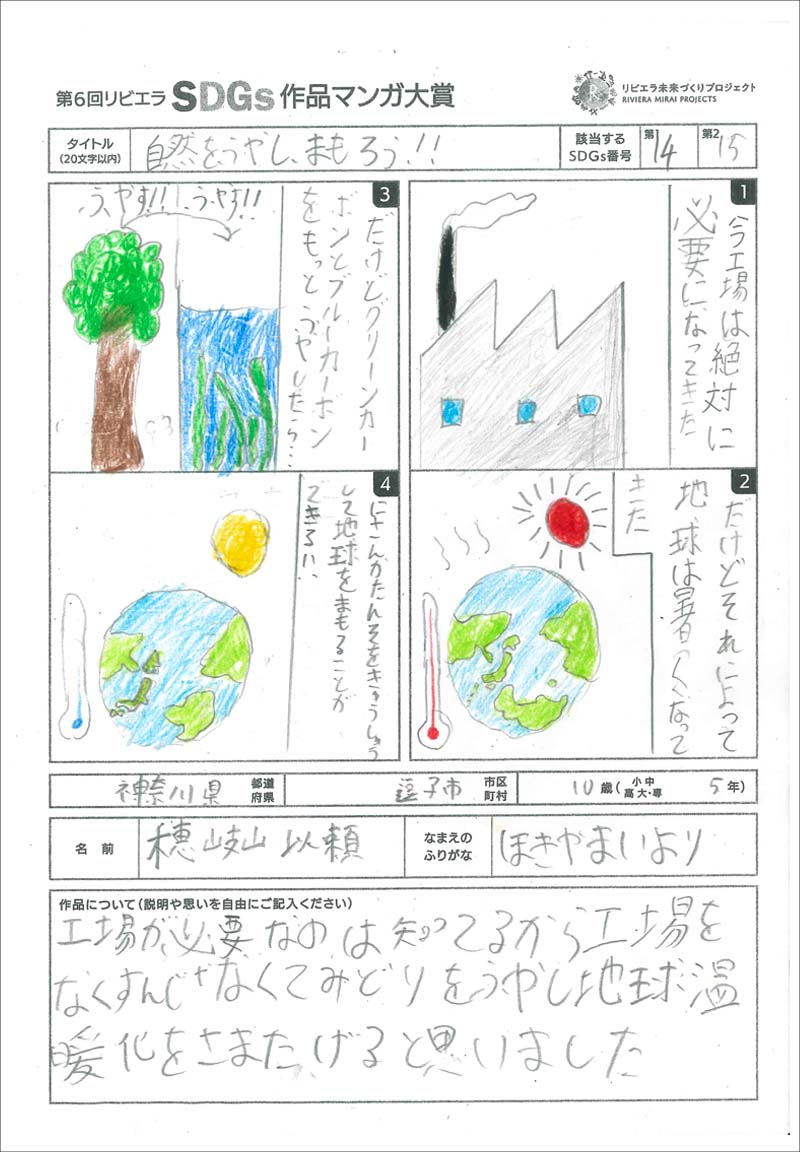 第6回リビエラ SDGs 作品マンガ大賞
リビエラ未来づくりプロジェクト
RIVIERA MIRAI PROJECTS
タイトル
(20文字以内)
自然をうやし、まもろう!!
該当する
SDGs番号
第1
14
第2
15
1
今工場は絶対に
必要になってきた
2
だけどそれによって
地球は暑くなって
きた
3
だけどグリーンカー
ボンとブルーカーボン
をもっとうやしたら…
うやす!!
うやす!!
4
にさんかたんそをきゅうしゅう
して地球をまもることが
できる!!
神奈川県
都道
府県
逗子市
市区
町村
10歳(小中高大・専 5年)
名前
穂岐山 以頼
なまえの
ふりがな
ほきやまいより
作品について(説明や思いを自由にご記入ください)
工場が必要なのは知ってるから工場を
なくすんじゃなくてみどりをうやし地球温
暖化をさまたげると思いました